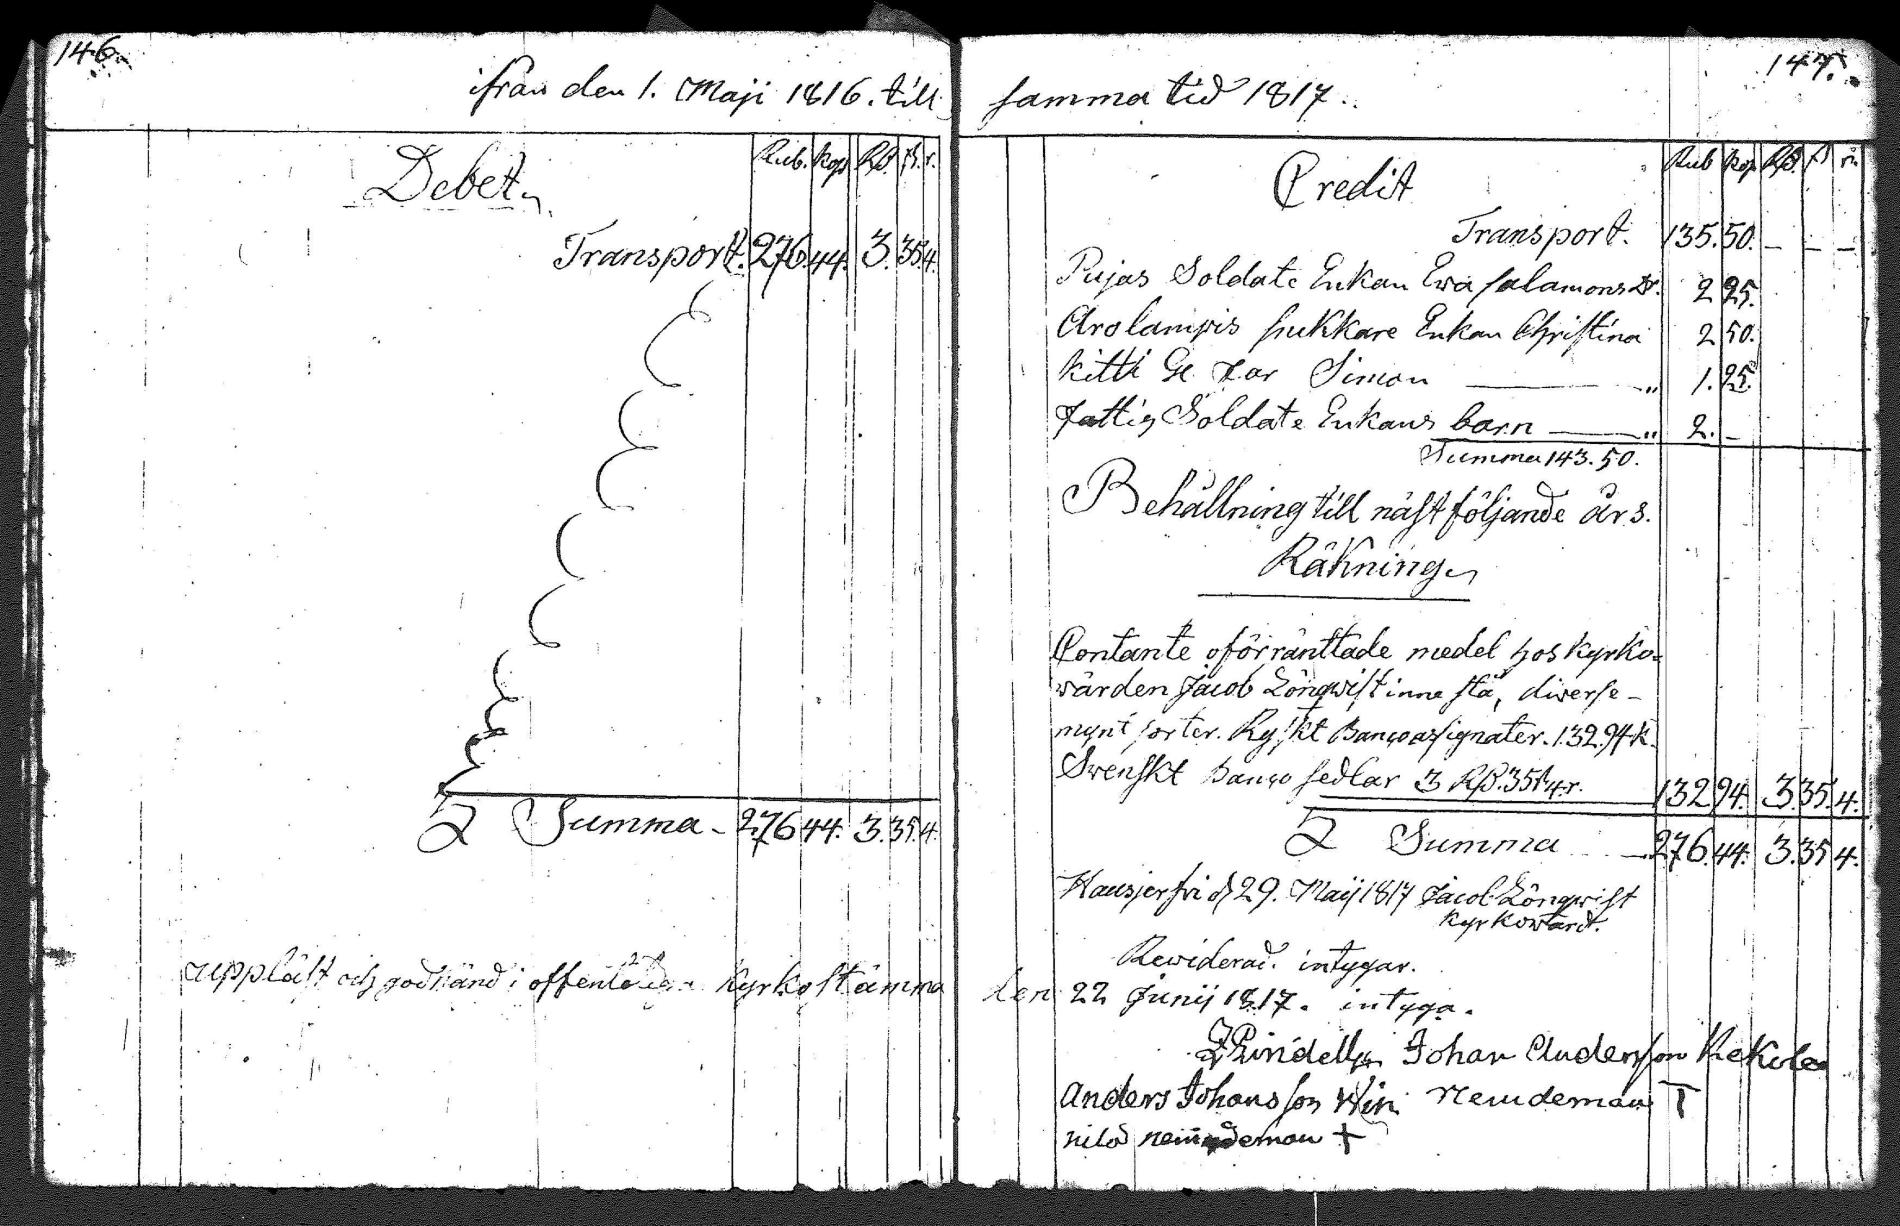 146.
ifrån den 1. Maji 1816. till
Debet
Rub. kop Rß. ß. r.
Transport. 276. 44. 3. 35. 4.
Summa - 276 44. 3. 35. 4.
Uppläst och godkänd i offentelig Kyrkostämma
147.
samma tid 1817.
Credit
Rub kop Rß. ß r.
Transport. 135. 50. - - -
Pujas Soldate Enkan Ewa Salamonsdr. 2 25.
Arolampis sukkare Enkan Christina 2 50.
Kitti Simon " 1. 25.
Fattig Soldate Enkans barn " 2. -
Summa 143. 50.
Behållning till näst följande års.
Räkning
Contante oförränttade medel hos kyrko=
wärden Jacob Lönqwist inne stå, diverse -
mynt sorter. Ryskt Banco assignater. 132.94 k.
Swenskt banco sedlar 3 Rß. 35ß 4 r. 132 94. 3. 35. 4.
Summa 276. 44. 3. 35 4.
d 29. Maij 1817 Jacob Lönqwist
kyrkowärd.
Reviderad. intygar.
den 22 Junij 1817. intyga.
Johan Andersson Kekola
Anders Johansson Nemdeman T
nemdeman +